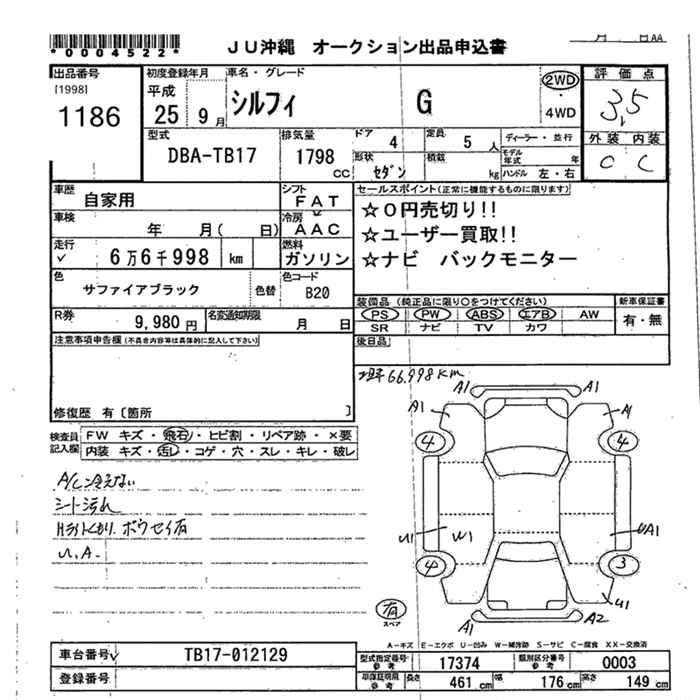 *0004522*
JU沖縄 オークション出品申込書
AA
出品番号 [1998] 1186
初度登録年月 平成 25 9月
車名・グレード シルフィ G
2WD・4WD
評価点 3,5
外装 内装 C C
型式 DBA-TB17
排気量 1798 CC
ドア 4
形状 セダン
定員 5 人
積載 kg
ディーラー・並行
モデル年式 年
ハンドル 左・右
車歴 自家用
シフト FAT
車検 年 月( 日)
冷房 AAC
走行 ✓ 6万6千998 km
燃料 ガソリン
色 サファイアブラック 色替
色コード B20
R券 9,980円
名変通知期限 月 日
セールスポイント(正常に機能するものに限ります)
☆0円売切り!!
☆ユーザー買取!!
☆ナビ バックモニター
装備品 (純正品に限り○をつけてください)
PS PW ABS エアB AW
SR ナビ TV カワ
新車保証書 有・無
後日品
注意事項申告欄(不具合内容等は具体的に記入して下さい)
修復歴 有〔箇所 〕
66.998km
検査員記入欄
FW キズ・飛石・ヒビ割・リペア跡・×要
内装 キズ・汚レ・コゲ・穴・スレ・キレ・破レ
A/C冷えない
シート汚れ
Hライトくもり. ボウセイ有
U.A.
A1 A1
A1 A1
4 4
U1 W1 UA1
4 3
U1
A1 A2
有 スペア
A-キズ E-エクボ U-凹み W-補修跡 S-サビ C-腐食 XX-交換済
車台番号 ✓ TB17-012129
登録番号
型式指定番号 参考 17374
類別区分番号 参考 0003
車保証明用 参考 長さ 461 cm 幅 176 cm 高さ 149 cm